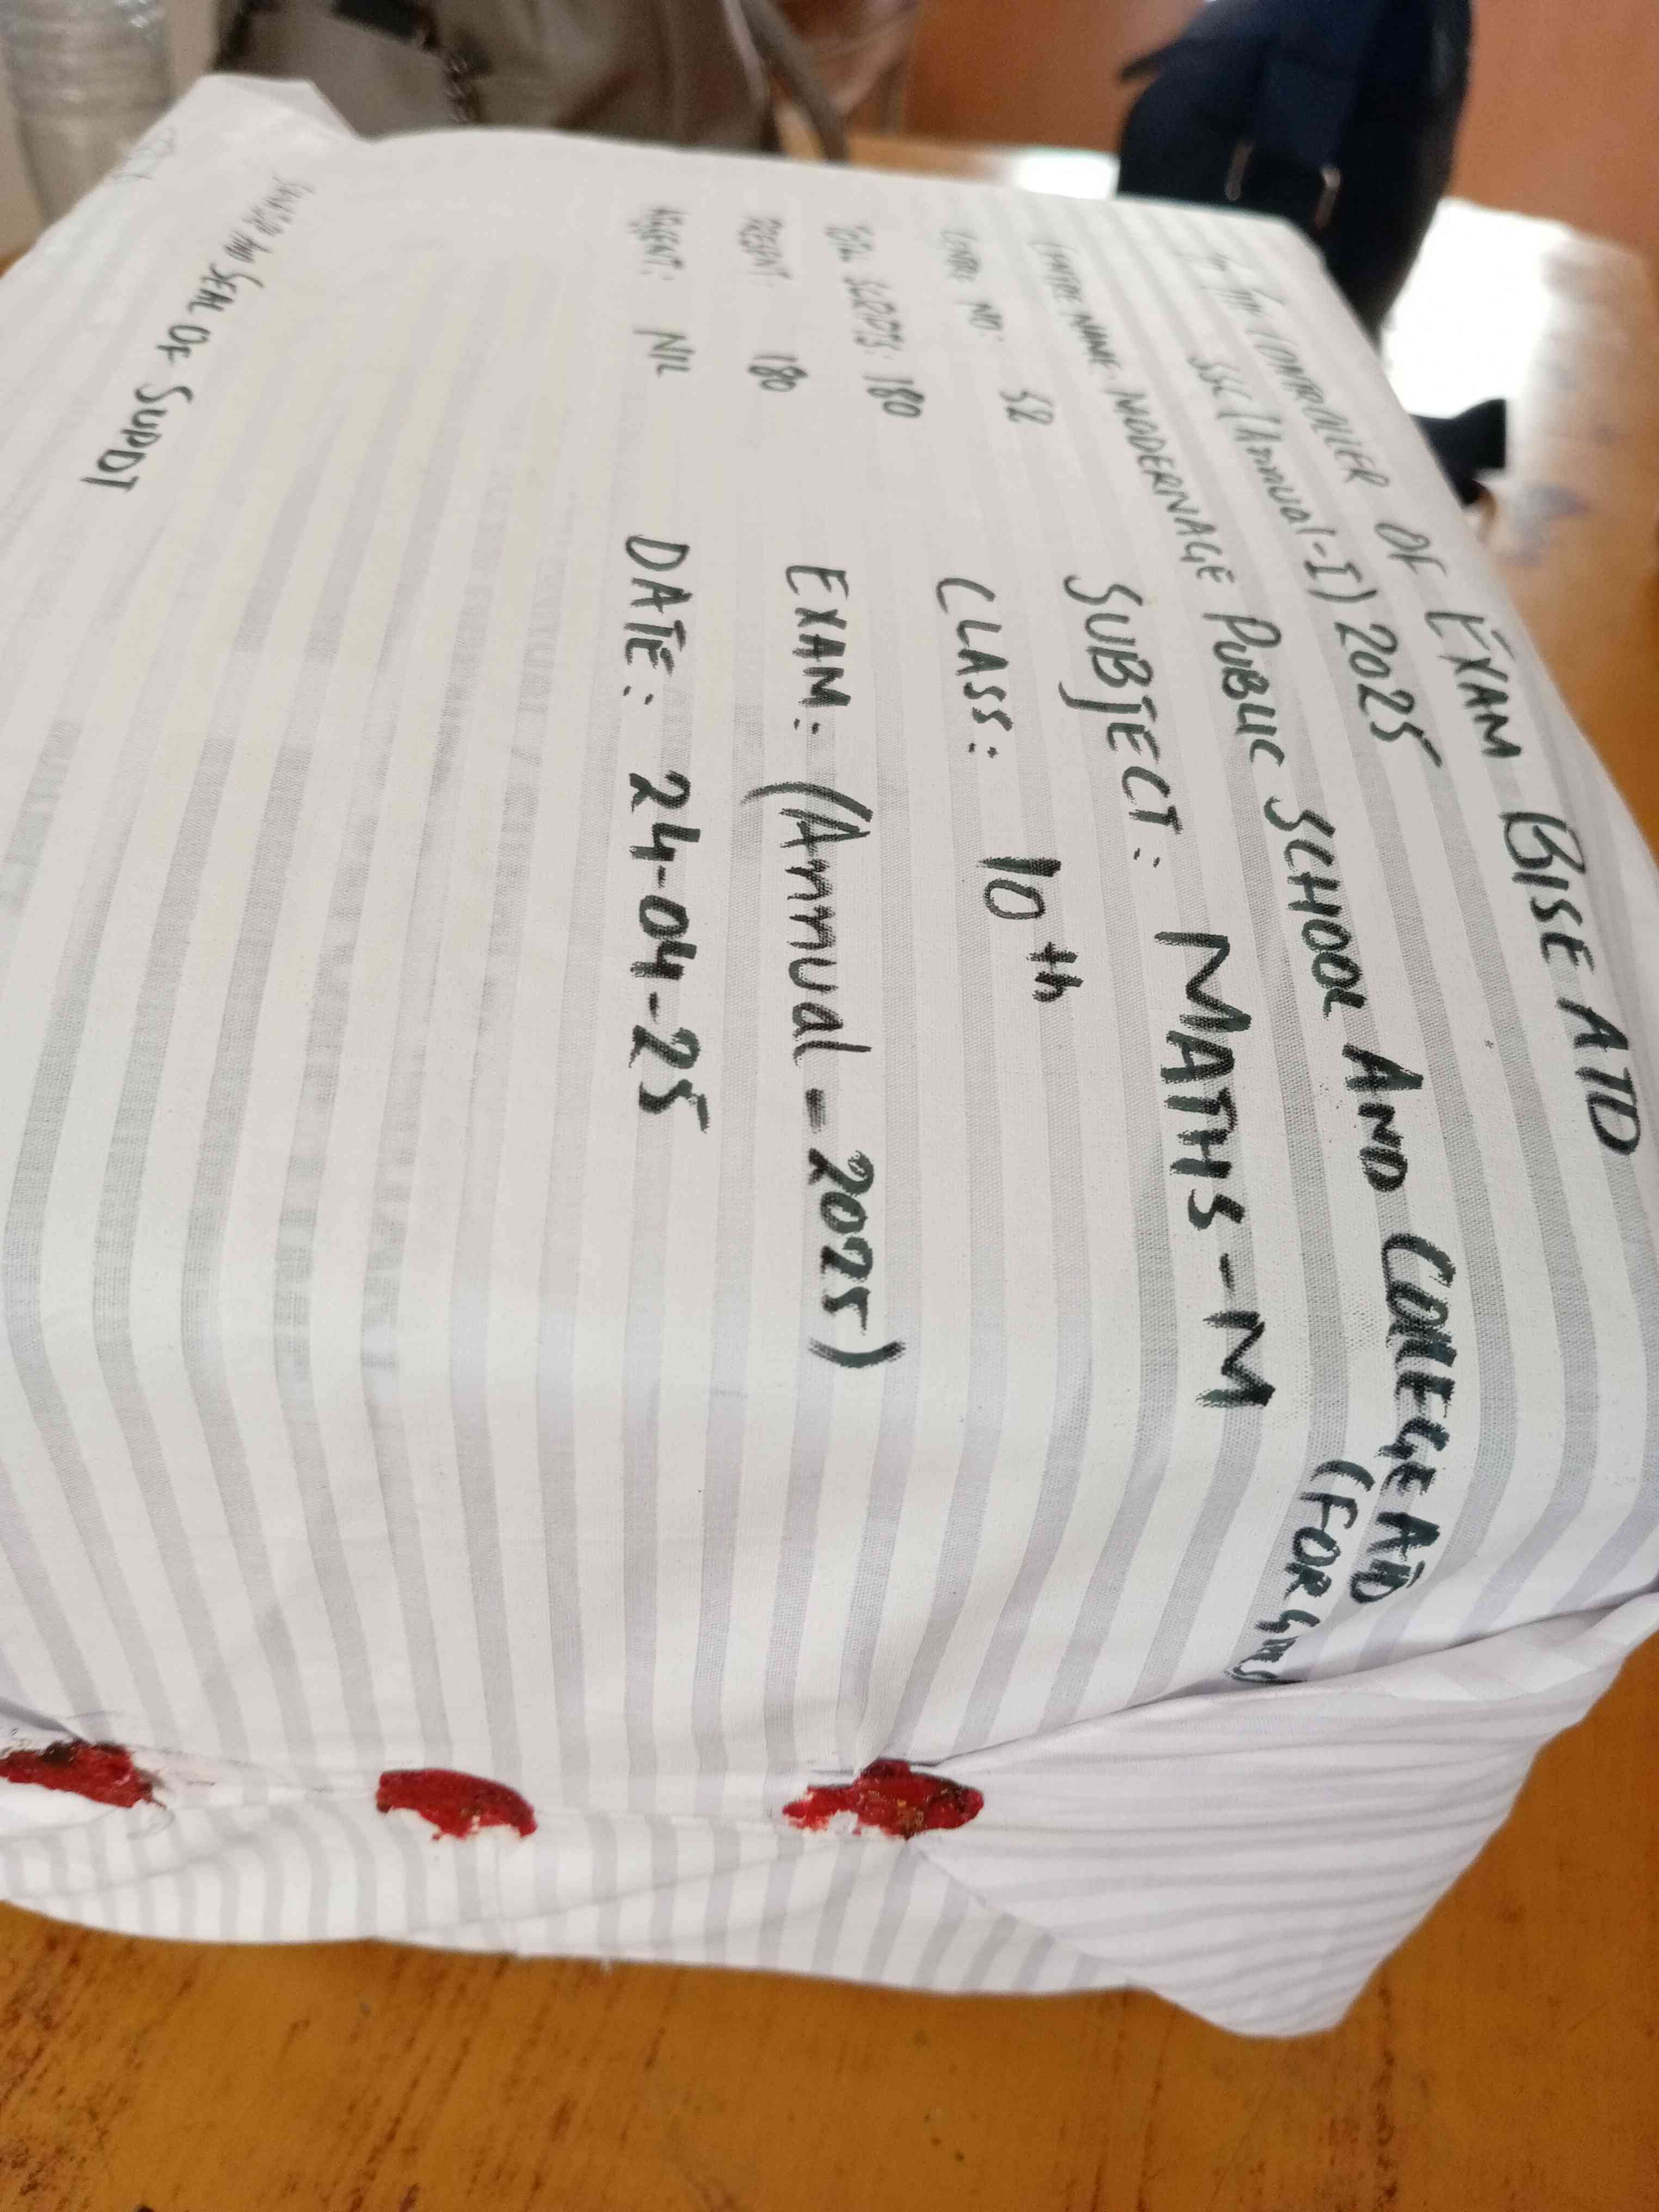 To The CONTROLLER OF EXAM BISE ATD
SSC (Annual-I) 2025
CENTRE NAME: MODERNAGE PUBLIC SCHOOL AND COLLEGE ATD
(FOR GIRLS)
SUBJECT: MATHS-M
CENTRE NO: 52
CLASS: 10th
TOTAL SCRIPTS: 180
PRESENT: 180
EXAM: (Annual-2025)
ABSENT: NIL
DATE: 24-04-25
SEAL OF SUPDT